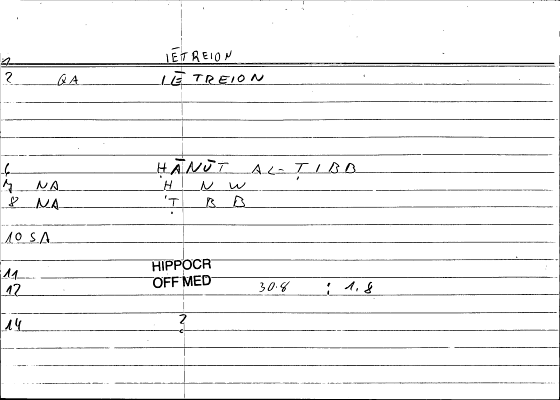 IĒTREION
1
2 QA IĒTREION
6 ḤĀNŪT AL-ṬIBB
7 NA Ḥ N W
8 NA Ṭ B B
10 SA
11 HIPPOCR
12 OFF MED 30.8 : 1.8
14 ?